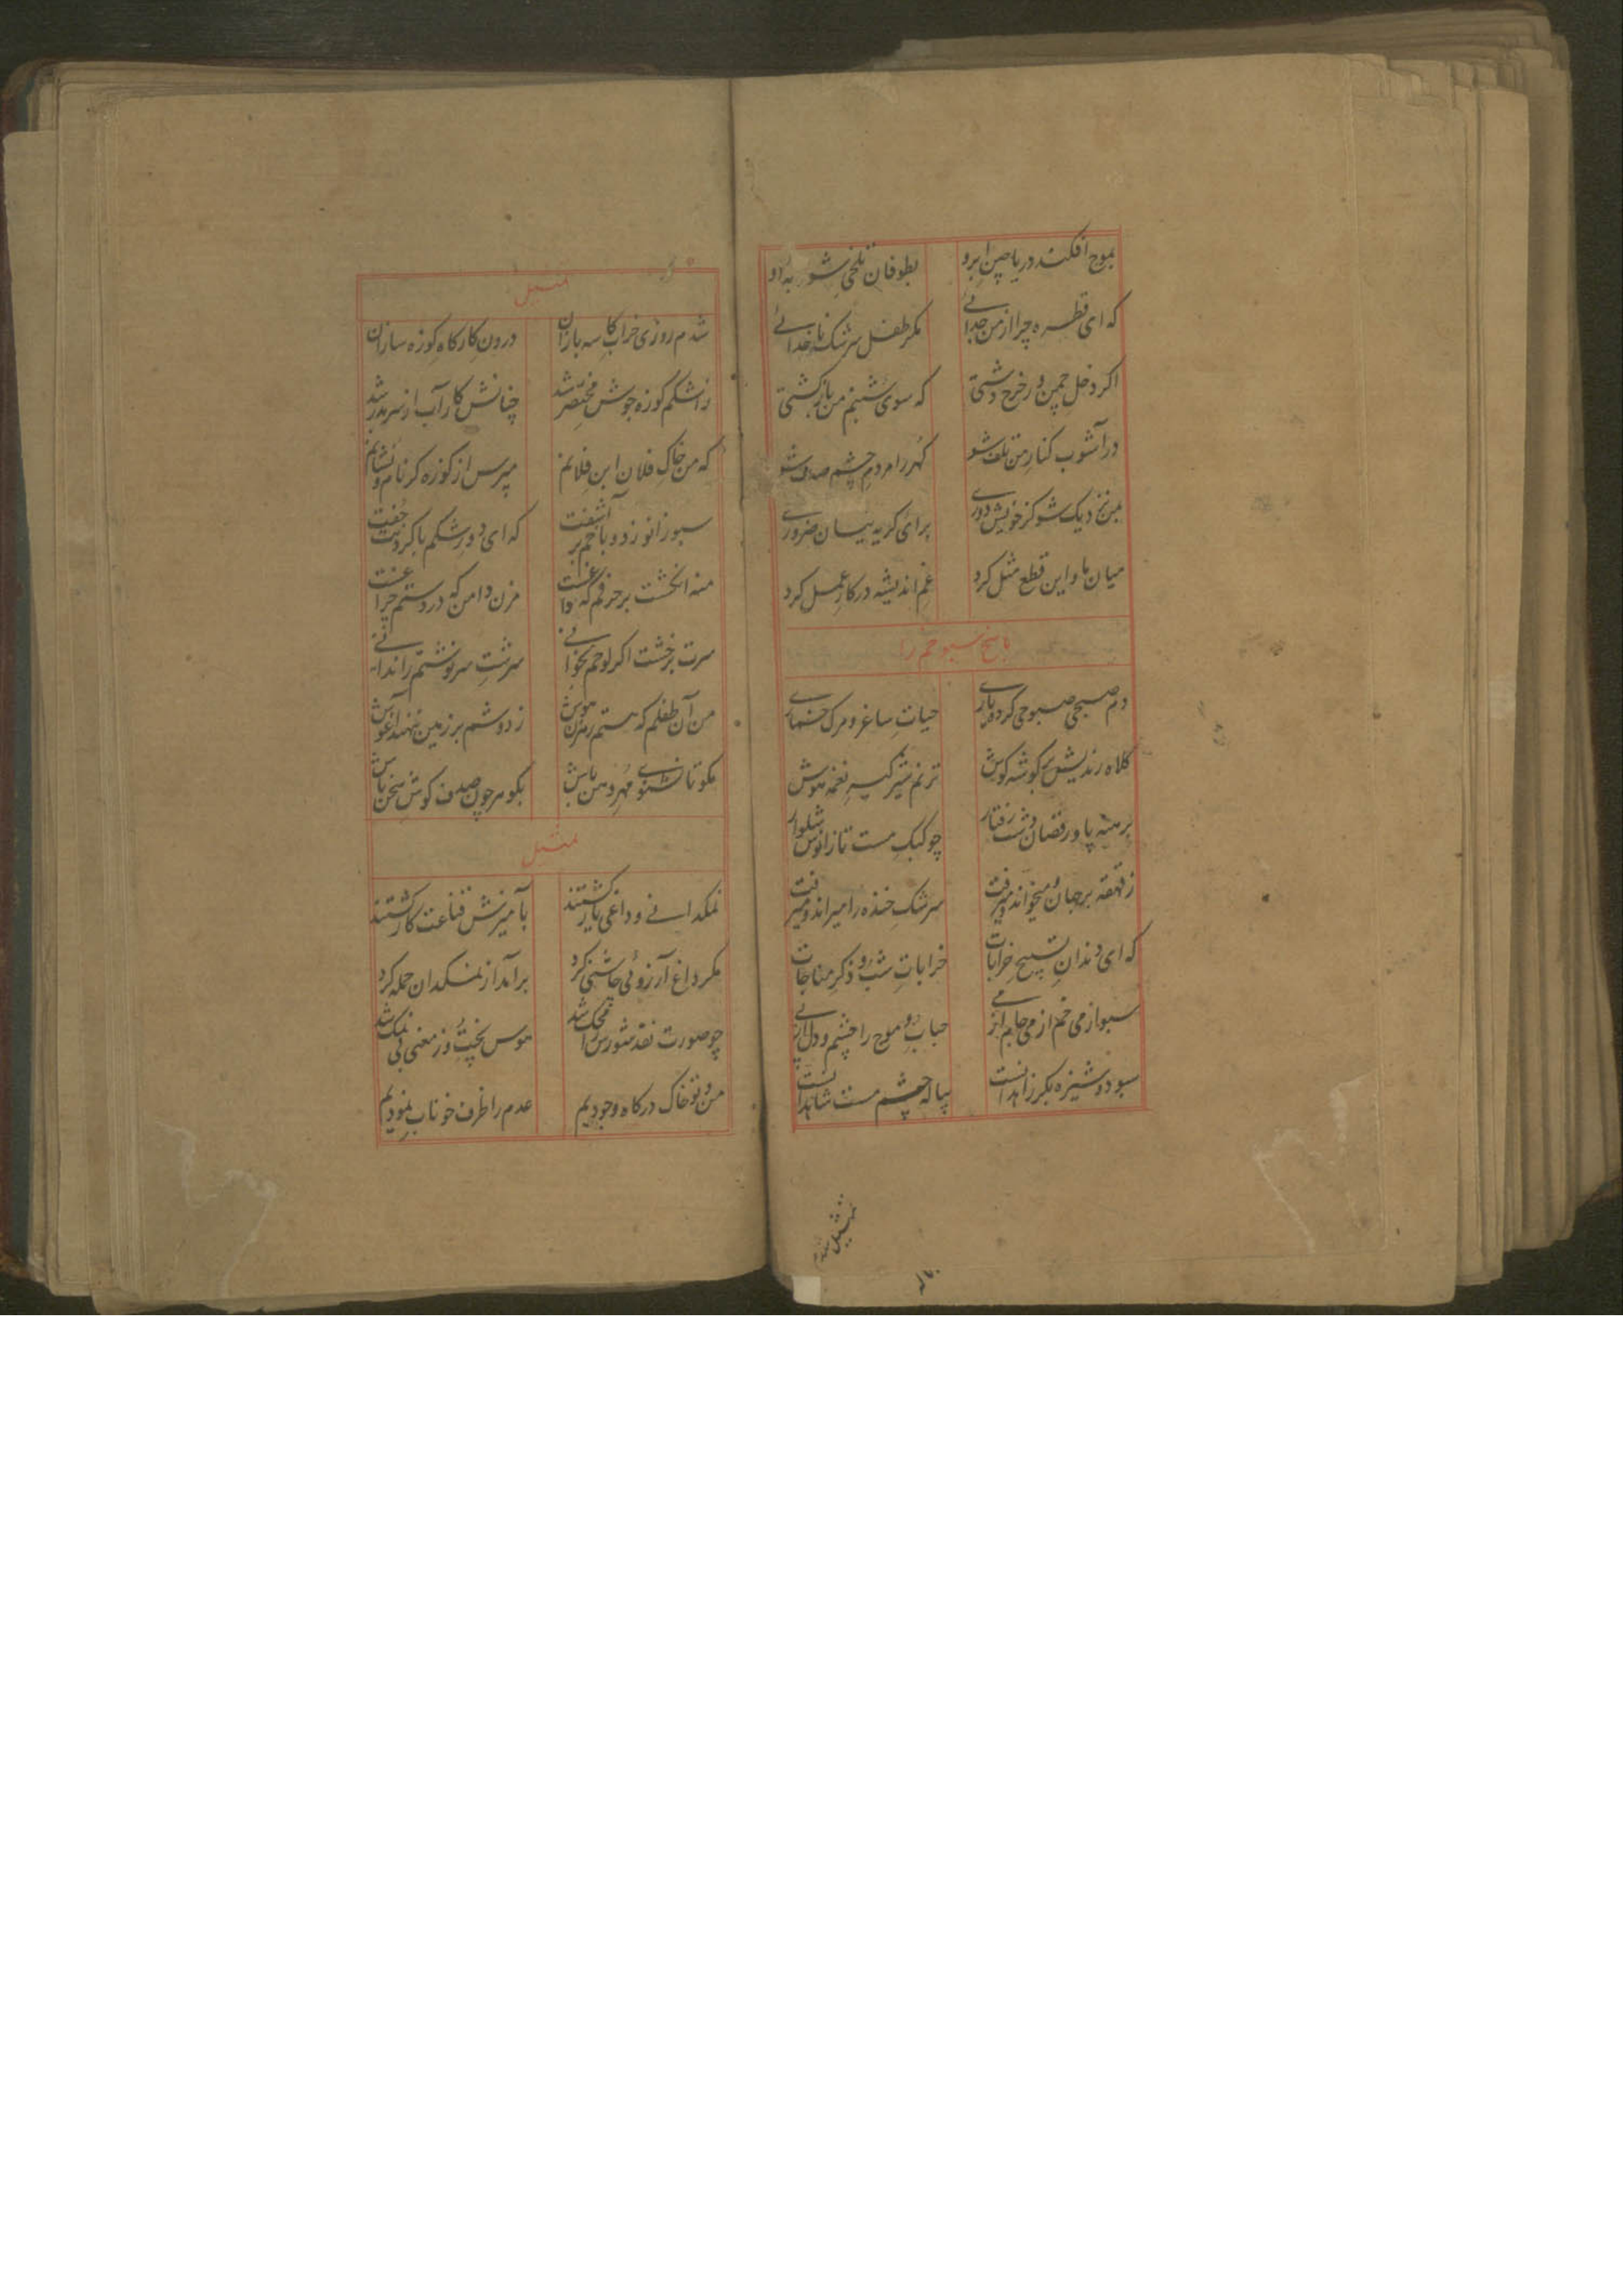 بموج افکند دریا چین ابرو بطوفان تلخی شو به او
که ای قطره چرا از من جدائی مکر طفل سرشک ناخدائی
اکر دخل چمن در خرج دشتی که سوی شبنم من بازکشتی
در آشوب کنار من تلف شو کهر را مردم چشم صدف شو
بمن نزدیک شو کز خویش دوری برای کریه نیسان ضروری
میان ما و این قطع مثل کرد غم اندیشه در کار عمل کرد
پاسخ سبو خم را
دم صبحی صبوحی کرده یاری حیات ساغر و مرک خماری
کلاه رندیش کج کوشه کوش ترنم شیرکیر نغمه هوش
برهنه پا و رقصان دشت رفتار چو کبک مست تا زانوش شلوار
ز قهقه بر جان میخواند و میرفت سرشک خنده را میراند و میرفت
که ای دندان تسبیح خرابات خرابات شب و ذکر مناجات
سبو از می خم از می جام از می حباب و موج را چشم و دل از پی
سبو دوشیزه بکر زاهدانست پیاله چشم مست شاهدانست
تمثیل
شدم روزی خراب کاسه بازان درون کارکاه کوزه سازان
ز اشکم کوزه جوش مختصر شد چنانش کار آب از سر بدر شد
که من خاک فلان ابن فلانم مپرس از کوزه کر نام و نشانم
سبو زانو زد و با خم برآشفت که ای دور شکم با کردنت جفت
منه انکشت بر حرفم که داغست مزن دامن که در دستم چراغست
سرت بر خشت اکر لوحم بخوانی سرشت سرنوشتم را ندانی
من آن طفلم که هستم رهزن هوش ز دوشم بر زمین ننهد آغوش
مکو تا نشنوی مهر دهن باش بکوهر چون صدف کوش سخن باش
تمثیل
نمکدانی و داغی یار کشتند بآمیزش قناعت کار کشتند
مکر داغ آرزوئی چاشنی کرد برآمد از نمکدان حمله کرد
چو صورت نقد شورش را محک شد هوس پخت و ز معنی بی نمک شد
من و تو خاک درکاه وجودیم عدم را ظرف خوناب نمودیم
تمثیل